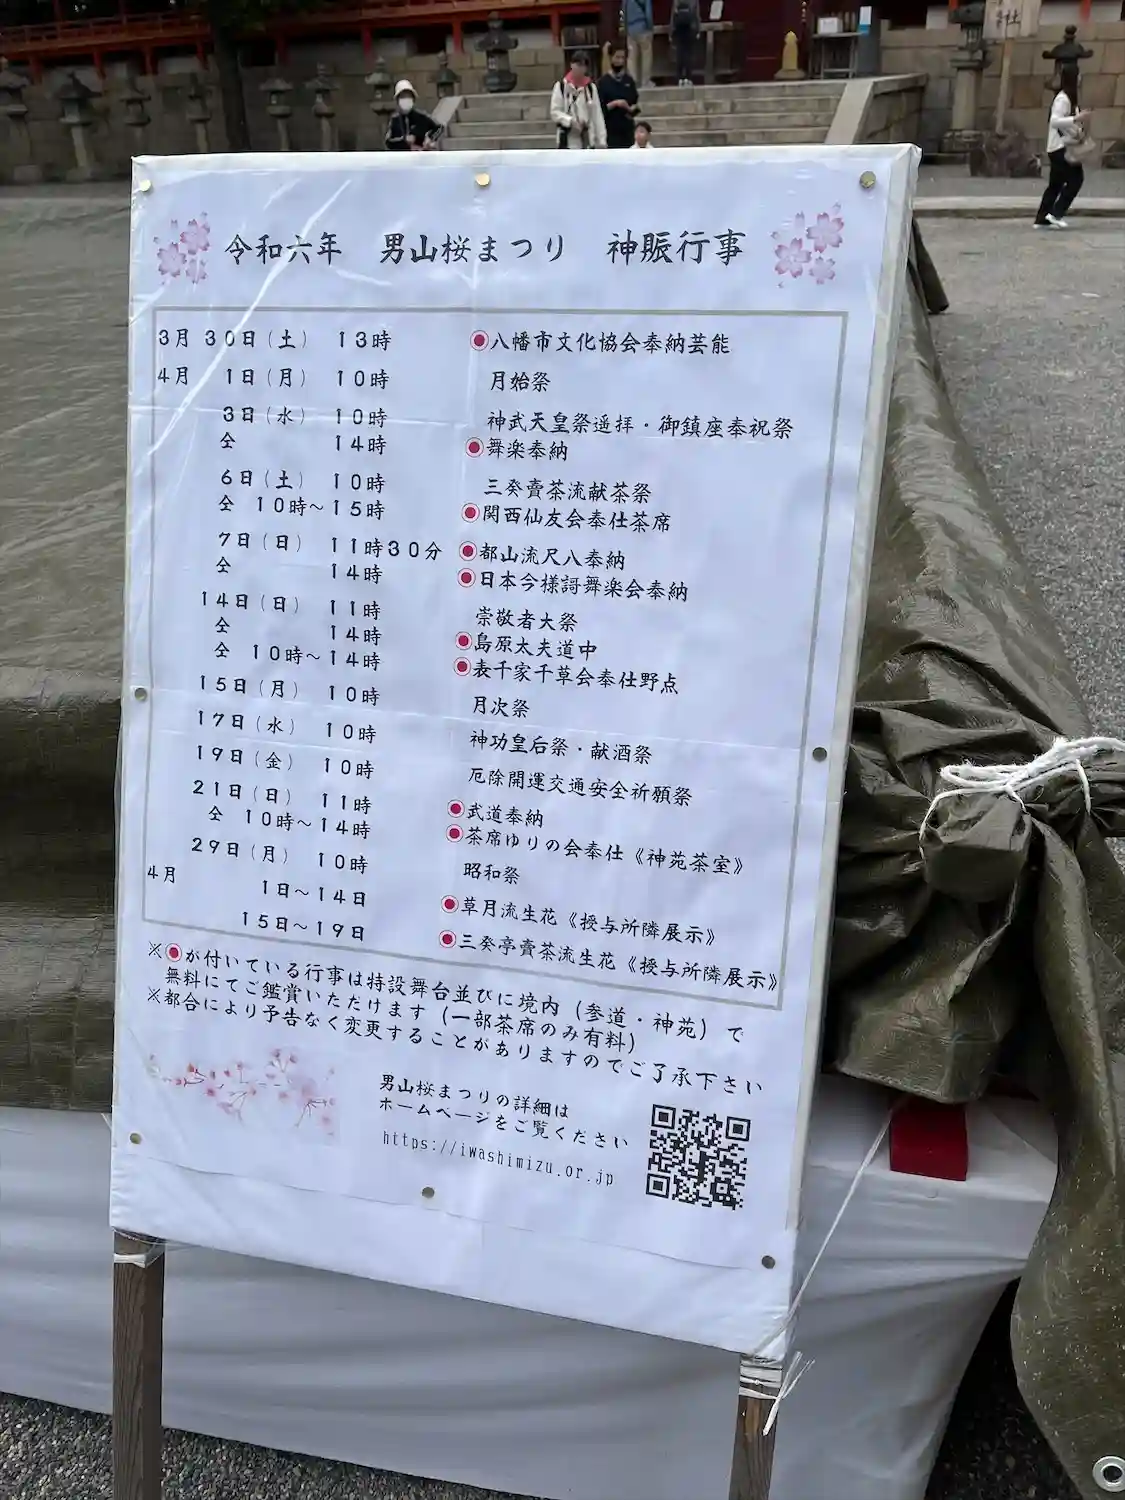 令和六年 男山桜まつり 神賑行事
3月 30日(土) 13時 ◉八幡市文化協会奉納芸能
4月 1日(月) 10時 月始祭
3日(水) 10時 神武天皇祭遥拝・御鎮座奉祝祭
仝 14時 ◉舞楽奉納
6日(土) 10時 三癸賣茶流献茶祭
仝 10時~15時 ◉関西仙友会奉仕茶席
7日(日) 11時30分 ◉都山流尺八奉納
仝 14時 ◉日本今様謌舞楽会奉納
14日(日) 11時 崇敬者大祭
仝 14時 ◉島原太夫道中
仝 10時~14時 ◉表千家千草会奉仕野点
15日(月) 10時 月次祭
17日(水) 10時 神功皇后祭・献酒祭
19日(金) 10時 厄除開運交通安全祈願祭
21日(日) 11時 ◉武道奉納
仝 10時~14時 ◉茶席ゆりの会奉仕《神苑茶室》
29日(月) 10時 昭和祭
4月 1日~14日 ◉草月流生花《授与所隣展示》
15日~19日 ◉三癸亭賣茶流生花《授与所隣展示》
※◉が付いている行事は特設舞台並びに境内(参道・神苑)で
無料にてご鑑賞いただけます(一部茶席のみ有料)
※都合により予告なく変更することがありますのでご了承下さい
男山桜まつりの詳細は
ホームページをご覧ください
https://iwashimizu.or.jp